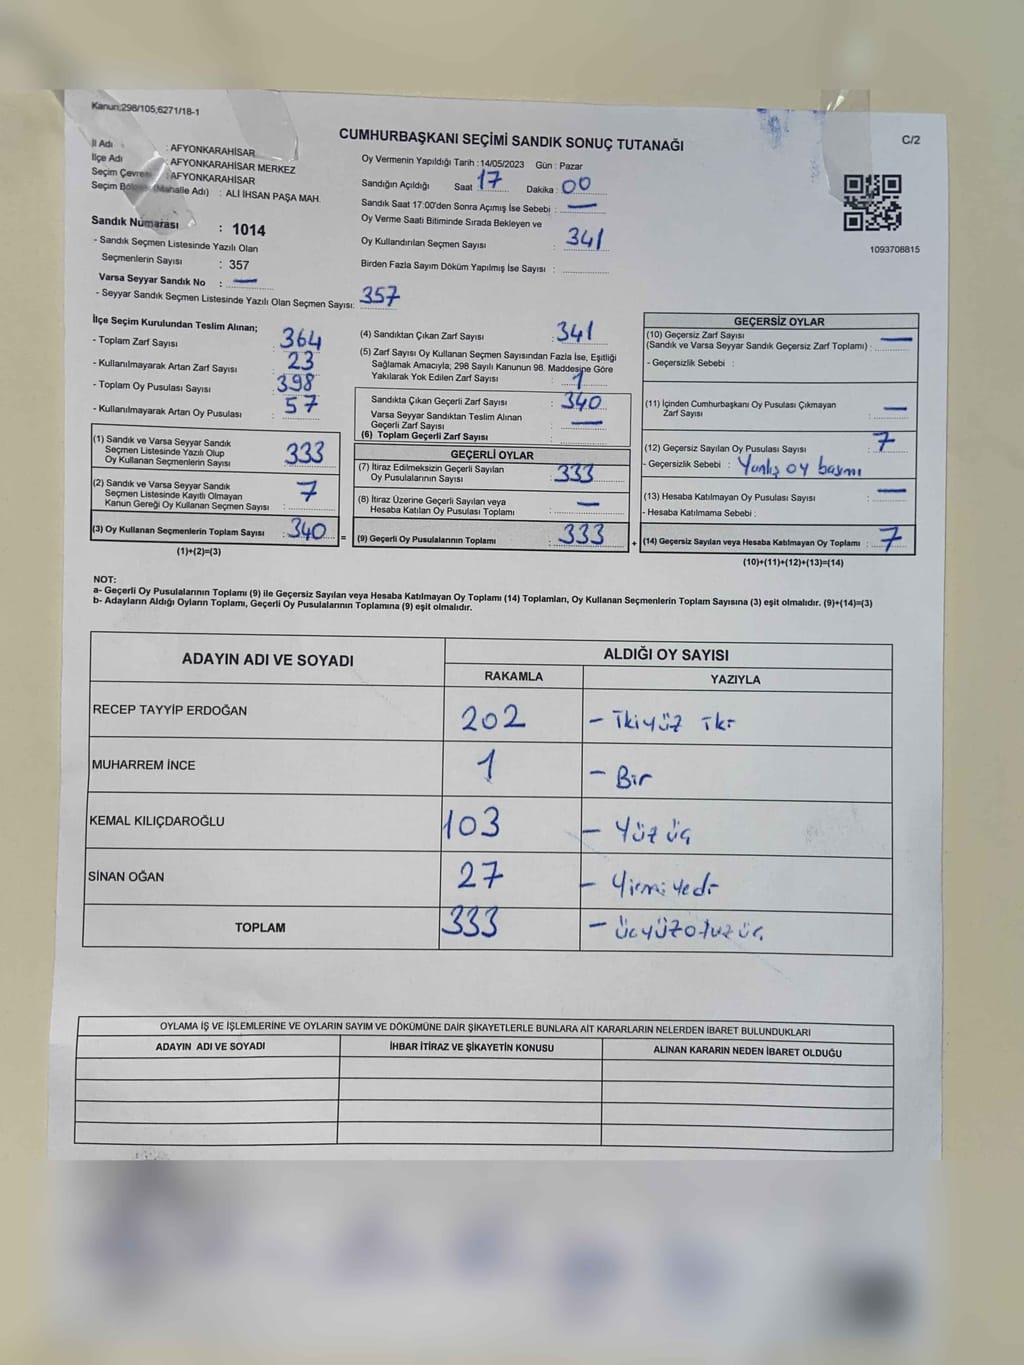 Kanun:298/105,6271/18-1
C/2
CUMHURBAŞKANI SEÇİMİ SANDIK SONUÇ TUTANAĞI
İl Adı : AFYONKARAHİSAR
İlçe Adı : AFYONKARAHİSAR MERKEZ
Seçim Çevresi : AFYONKARAHİSAR
Seçim Bölgesi (Mahalle Adı) : ALİ İHSAN PAŞA MAH.
Sandık Numarası : 1014
- Sandık Seçmen Listesinde Yazılı Olan
Seçmenlerin Sayısı : 357
Varsa Seyyar Sandık No : —
- Seyyar Sandık Seçmen Listesinde Yazılı Olan Seçmen Sayısı: 357
Oy Vermenin Yapıldığı Tarih : 14/05/2023 Gün : Pazar
Sandığın Açıldığı Saat 17 Dakika : 00
Sandık Saat 17:00'den Sonra Açımış İse Sebebi : —
Oy Verme Saati Bitiminde Sırada Bekleyen ve
Oy Kullandırılan Seçmen Sayısı : 341
Birden Fazla Sayım Döküm Yapılmış İse Sayısı :
1093708815
İlçe Seçim Kurulundan Teslim Alınan;
- Toplam Zarf Sayısı : 364
- Kullanılmayarak Artan Zarf Sayısı : 23
- Toplam Oy Pusulası Sayısı : 398
- Kullanılmayarak Artan Oy Pusulası : 57
(1) Sandık ve Varsa Seyyar Sandık
Seçmen Listesinde Yazılı Olup
Oy Kullanan Seçmenlerin Sayısı : 333
(2) Sandık ve Varsa Seyyar Sandık
Seçmen Listesinde Kayıtlı Olmayan
Kanun Gereği Oy Kullanan Seçmen Sayısı : 7
(3) Oy Kullanan Seçmenlerin Toplam Sayısı : 340
(1)+(2)=(3)
(4) Sandıktan Çıkan Zarf Sayısı : 341
(5) Zarf Sayısı Oy Kullanan Seçmen Sayısından Fazla İse, Eşitliği
Sağlamak Amacıyla; 298 Sayılı Kanunun 98. Maddesine Göre
Yakılarak Yok Edilen Zarf Sayısı : 1
Sandıkta Çıkan Geçerli Zarf Sayısı : 340
Varsa Seyyar Sandıktan Teslim Alınan
Geçerli Zarf Sayısı : —
(6) Toplam Geçerli Zarf Sayısı :
GEÇERLİ OYLAR
(7) İtiraz Edilmeksizin Geçerli Sayılan
Oy Pusulalarının Sayısı : 333
(8) İtiraz Üzerine Geçerli Sayılan veya
Hesaba Katılan Oy Pusulası Toplamı : —
= (9) Geçerli Oy Pusulalarının Toplamı : 333
GEÇERSİZ OYLAR
(10) Geçersiz Zarf Sayısı
(Sandık ve Varsa Seyyar Sandık Geçersiz Zarf Toplamı) : —
- Geçersizlik Sebebi :
(11) İçinden Cumhurbaşkanı Oy Pusulası Çıkmayan
Zarf Sayısı : —
(12) Geçersiz Sayılan Oy Pusulası Sayısı : 7
- Geçersizlik Sebebi : Yanlış oy basımı
(13) Hesaba Katılmayan Oy Pusulası Sayısı : —
- Hesaba Katılmama Sebebi :
+ (14) Geçersiz Sayılan veya Hesaba Katılmayan Oy Toplamı : 7
(10)+(11)+(12)+(13)=(14)
NOT:
a- Geçerli Oy Pusulalarının Toplamı (9) ile Geçersiz Sayılan veya Hesaba Katılmayan Oy Toplamı (14) Toplamları, Oy Kullanan Seçmenlerin Toplam Sayısına (3) eşit olmalıdır. (9)+(14)=(3)
b- Adayların Aldığı Oyların Toplamı, Geçerli Oy Pusulalarının Toplamına (9) eşit olmalıdır.
ADAYIN ADI VE SOYADI ALDIĞI OY SAYISI
RAKAMLA YAZIYLA
RECEP TAYYİP ERDOĞAN 202 – İkiyüz iki
MUHARREM İNCE 1 – Bir
KEMAL KILIÇDAROĞLU 103 – Yüz üç
SİNAN OĞAN 27 – Yirmi yedi
TOPLAM 333 – üçyüzotuz üç
OYLAMA İŞ VE İŞLEMLERİNE VE OYLARIN SAYIM VE DÖKÜMÜNE DAİR ŞİKAYETLERLE BUNLARA AİT KARARLARIN NELERDEN İBARET BULUNDUKLARI
ADAYIN ADI VE SOYADI İHBAR İTİRAZ VE ŞİKAYETİN KONUSU ALINAN KARARIN NEDEN İBARET OLDUĞU